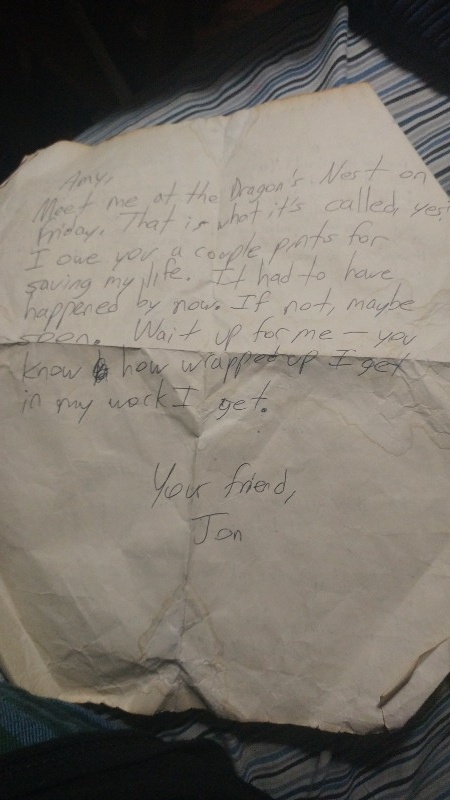 Amy,
Meet me at the Dragon's Nest on
Friday. That is what it's called, yes?
I owe you a couple pints for
saving my life. It had to have
happened by now. If not, maybe
soon. Wait up for me — you
know how wrapped up I get
in my work I get.
Your friend,
Jon